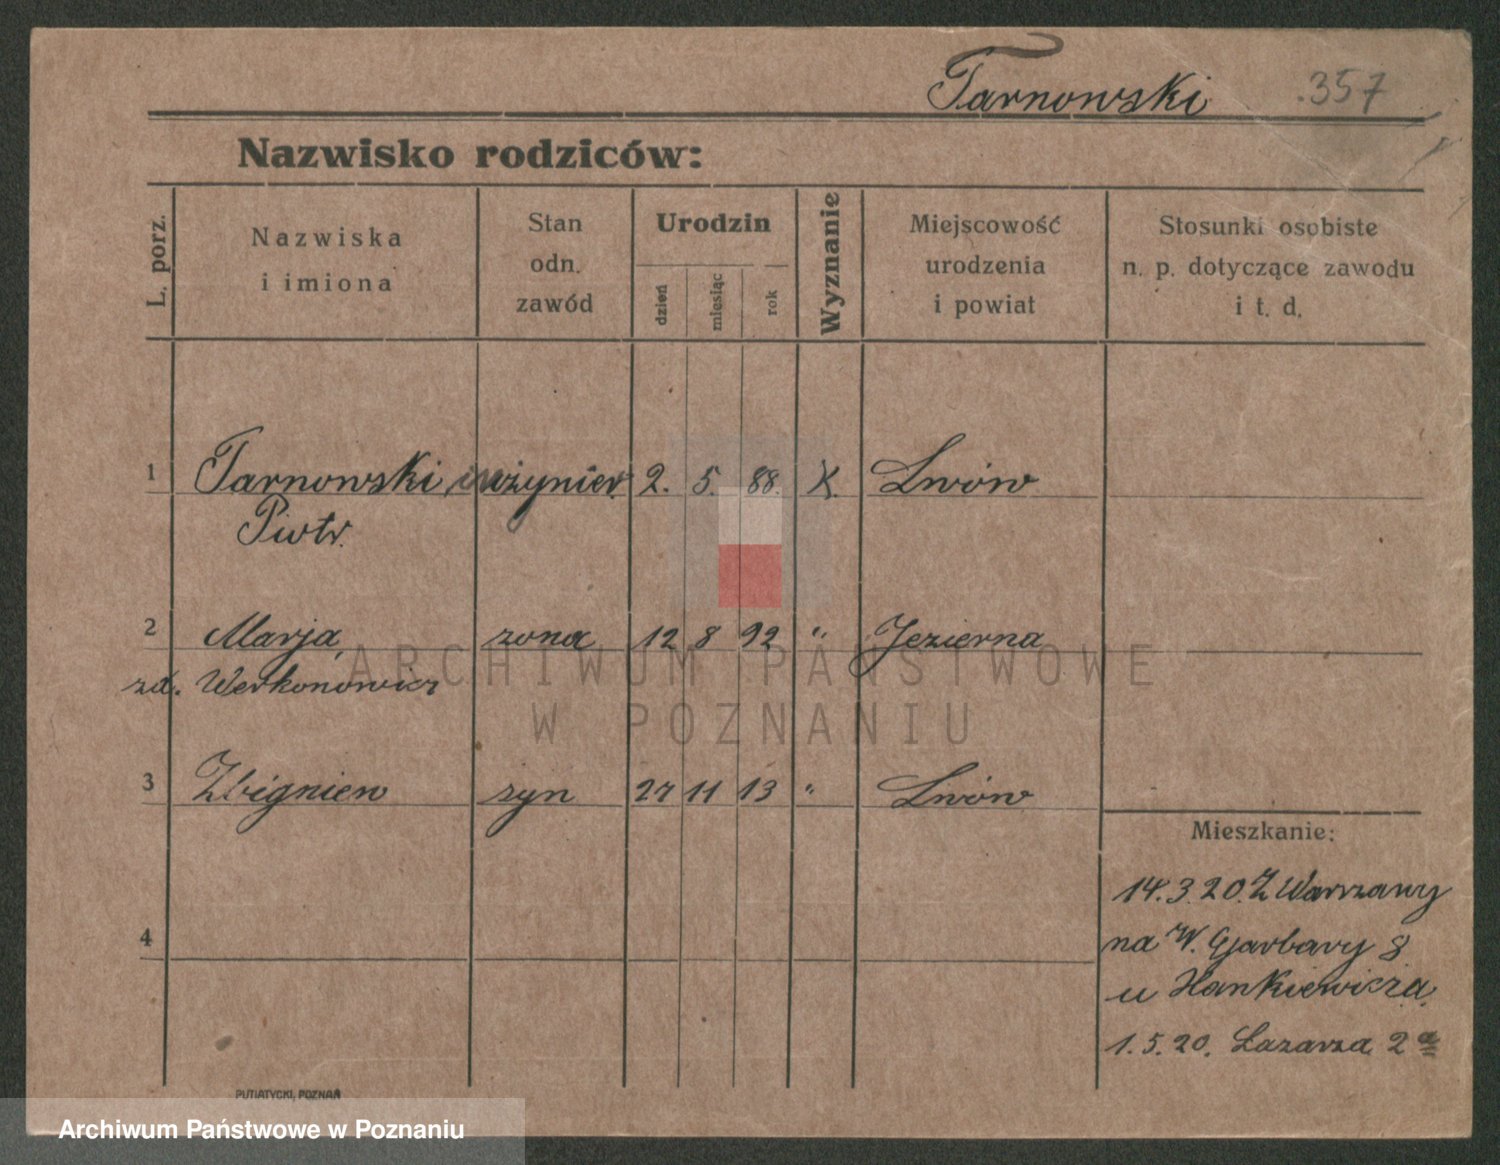 Tarnowski 357
Nazwisko rodziców:
L. porz.
Nazwiska
i imiona
Stan
odn.
zawód
Urodzin
dzień
miesiąc
rok
Wyznanie
Miejscowość
urodzenia
i powiat
Stosunki osobiste
n. p. dotyczące zawodu
i t. d.
1 Tarnowski, inżynier 2. 5. 88. K. Lwów
Piotr.
2 Marja, żona 12 8 92 " Jezierna
zd. Werkonowicz
3 Zbigniew syn 27 11 13 " Lwów
4
Mieszkanie:
14.3.20. Z Warszawy
na W. Garbary 8
u Hankiewicza.
1.5.20. Łazarza 2a
PUTIATYCKI, POZNAŃ
ARCHIWUM PAŃSTWOWE
W POZNANIU
Archiwum Państwowe w Poznaniu